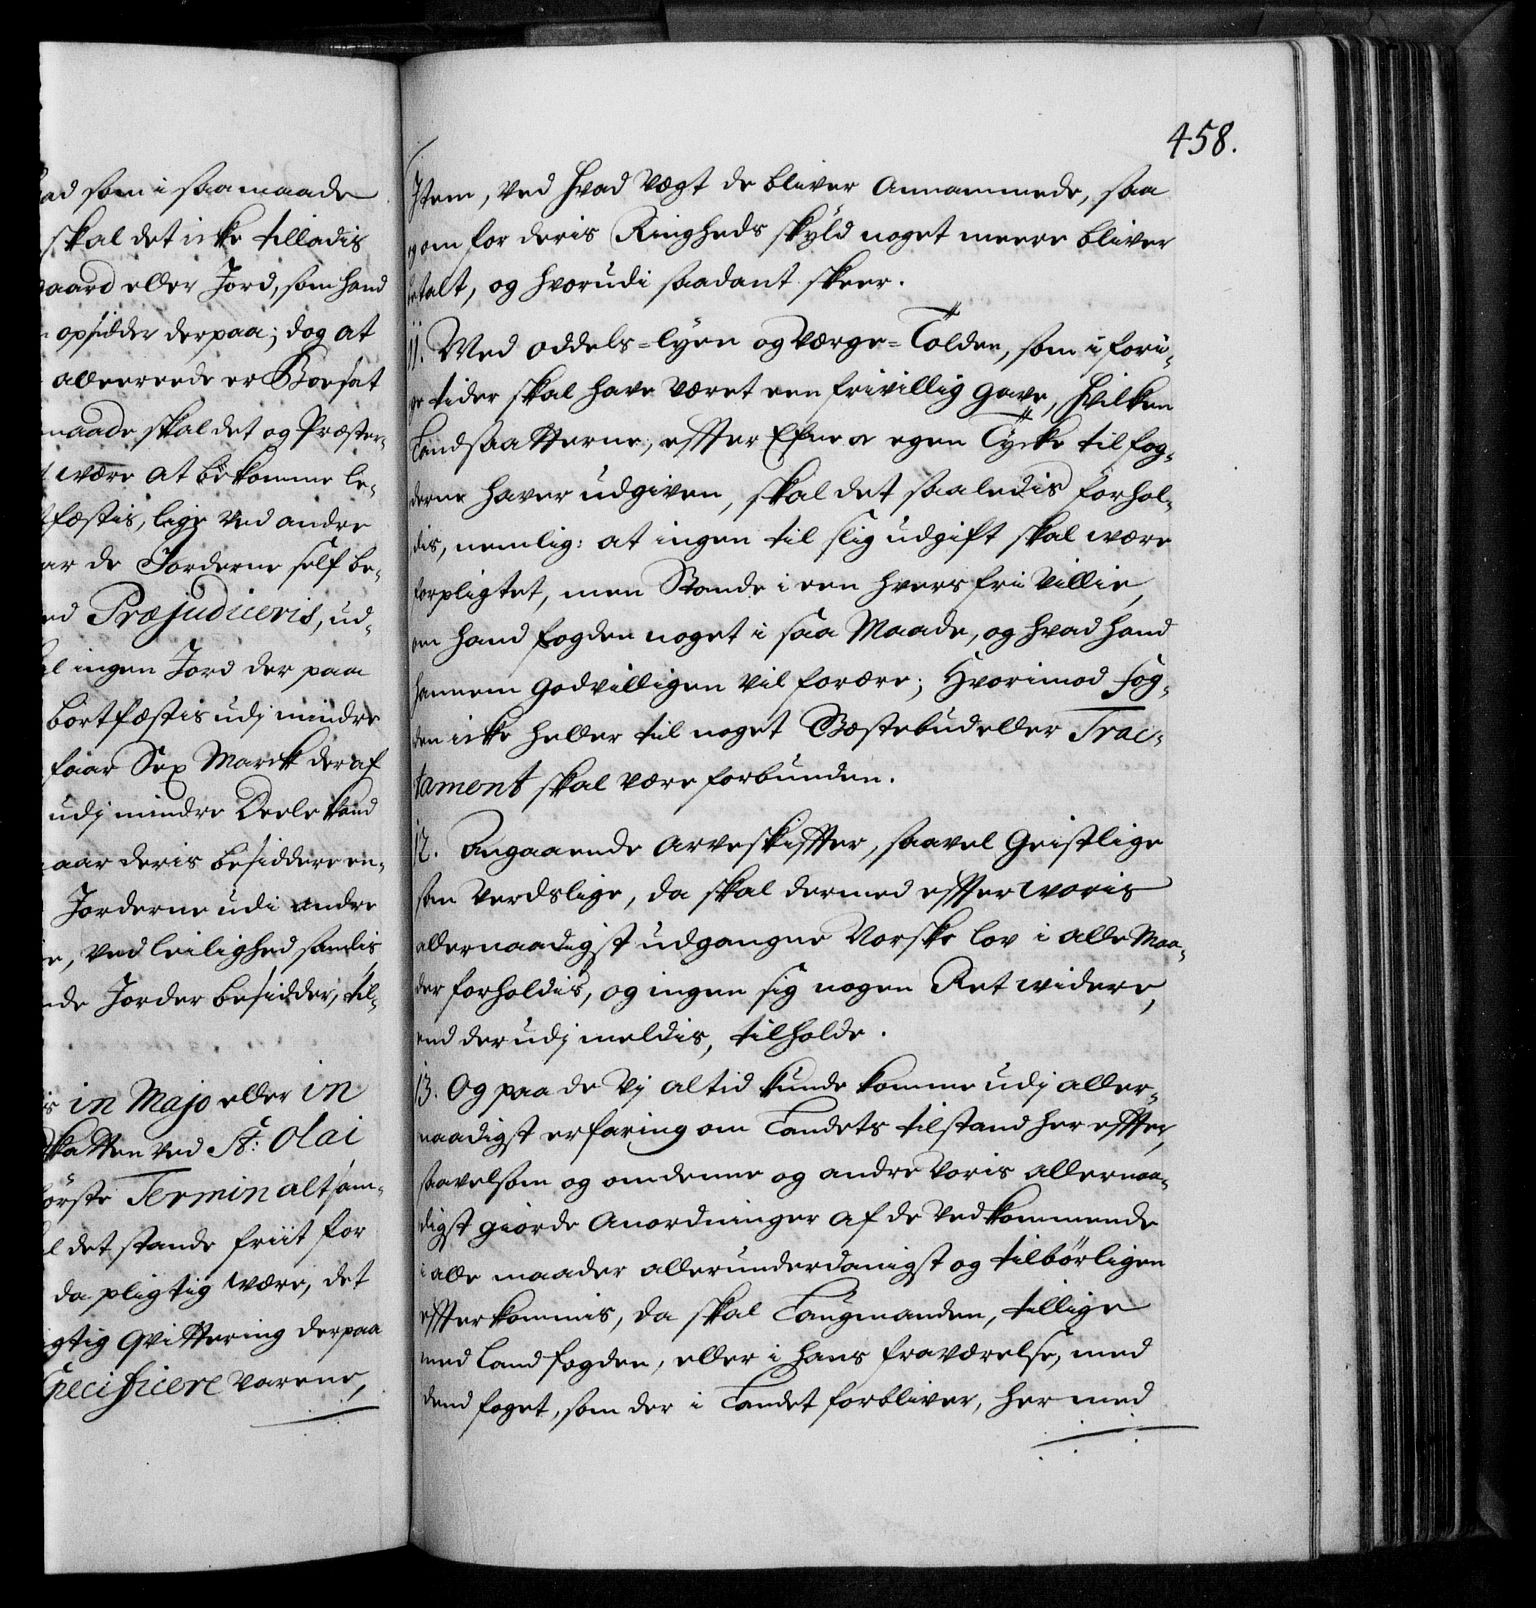 ad som i saa maade
skal det icke tilladis
gaard eller Jord, som hand
opsidder derpaa; dog at
alleerede er Boesat
maade skal det og Præster-
være at bekomme le-
fæstis, lige ved andre
ar de Jorderne self be-
ed Præjudiceris, ud-
ingen Jord der paa
bortfæstis udj mindre
faar Sex Marck der af
udj mindre Deele kand
aar deris besiddere en-
Jorderne udi andre
e, ved leilighed samlis
nde Jorder besidder, til-
in Majo eller in
Skatten ved St: Olai
første Termin altsam-
l det stande friit for
da pligtig være, det
gtig qvittering derpaa
specificere varene,
458.
Item, ved hvad vægt de bliver annammede, saa
og om for deris Ringheds skyld noget meere bliver
betalt, og hvorudi saadant skeer.
11. Med oddels-lyen og værge-Tolden, som i fori-
ge tider skal have været een frivillig gave, hvilken
Landsaatterne, effter Efne og egen Tycke til fog-
derne haver udgiven, skal det saaledis forhol-
dis, nemlig: at ingen til slig udgift skal være
forpligtet, men Stande i een hvers fri villie,
om hand fogden noget i saa Maade, og hvad hand
hannem godvilligen vil forære; Hvorimod fog-
den icke heller til noget Gæstebud eller Trac-
tament skal være forbunden.
12. Angaaende arveskiffter, saavel Geistlige
som Verdslige, da skal dermed effter voris
allernaadigst udgangne Norske lov i alle Maa-
der forholdis, og ingen sig nogen Ret widere,
end der udj meldis, tilholde.
13. Og paa de Vj altid kunde komme udj aller-
naadigst erfaring om Landets tilstand her effter,
saavelsom og om denne og andre Voris allernaa-
digst giorde Anordninger af de Vedkommende
i alle maader allerunderdanigst og tilbørligen
effterkommis, da skal Laugmanden, tillige
med Landfogden, eller i hans fraværelse, med
dend foget, som der i Landet forbliver, her med